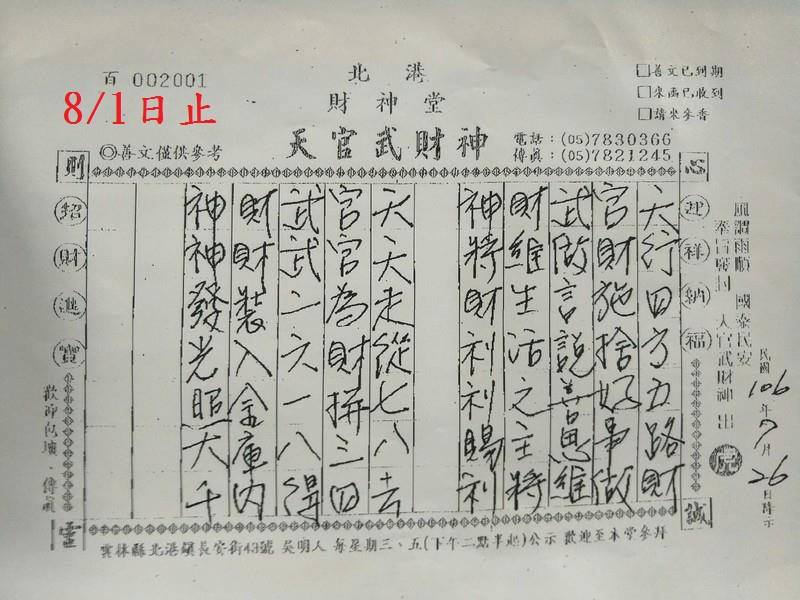 百 002001
8/1日止
北港
財神堂
天官武財神
◎善文僅供參考
電話：(05)7830366
傳真：(05)7821245
□善文已到期
□來函已收到
□請來參香
心
誠
則
靈
迎祥納福
招財進寶
風調雨順 國泰民安
天官武財神 出
民國106年7月26日降示
天行四方五路財
官財施捨好事做
武做言說善思維
財維生活之主將
神將財利利賜利
天天走從七八去
官官為財拼三四
武武二六一八得
財財裝入金庫內
神神發光照大千
雲林縣北港鎮長安街43號 吳明人 每星期三、五(下午二點半起)公示 歡迎至本堂參拜